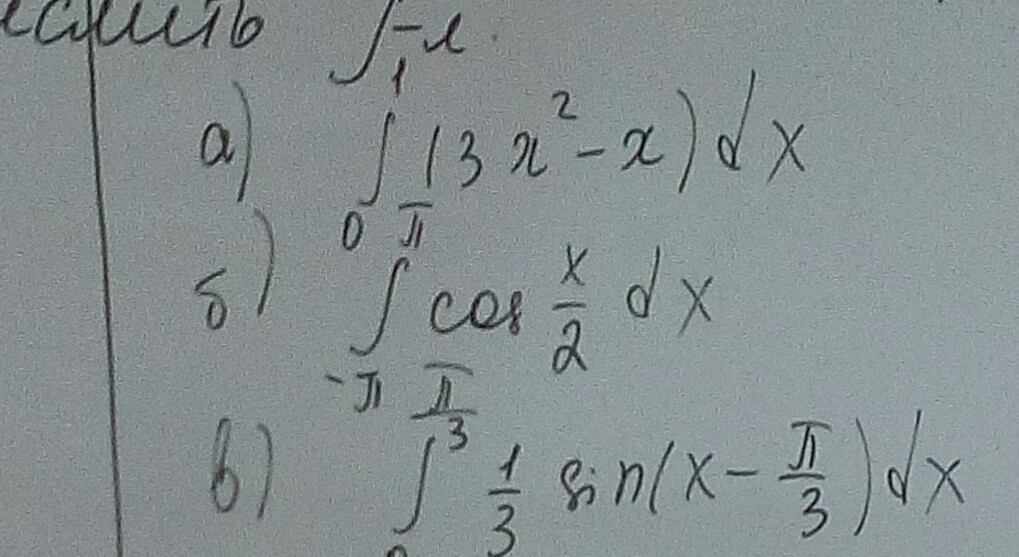 ∫-л.
а) ∫₀¹ (3x² - x) dx
б) ∫_{-π}^{π} cos x/2 dx
в) ∫₀^{π/3} 1/3 sin(x - π/3) dx